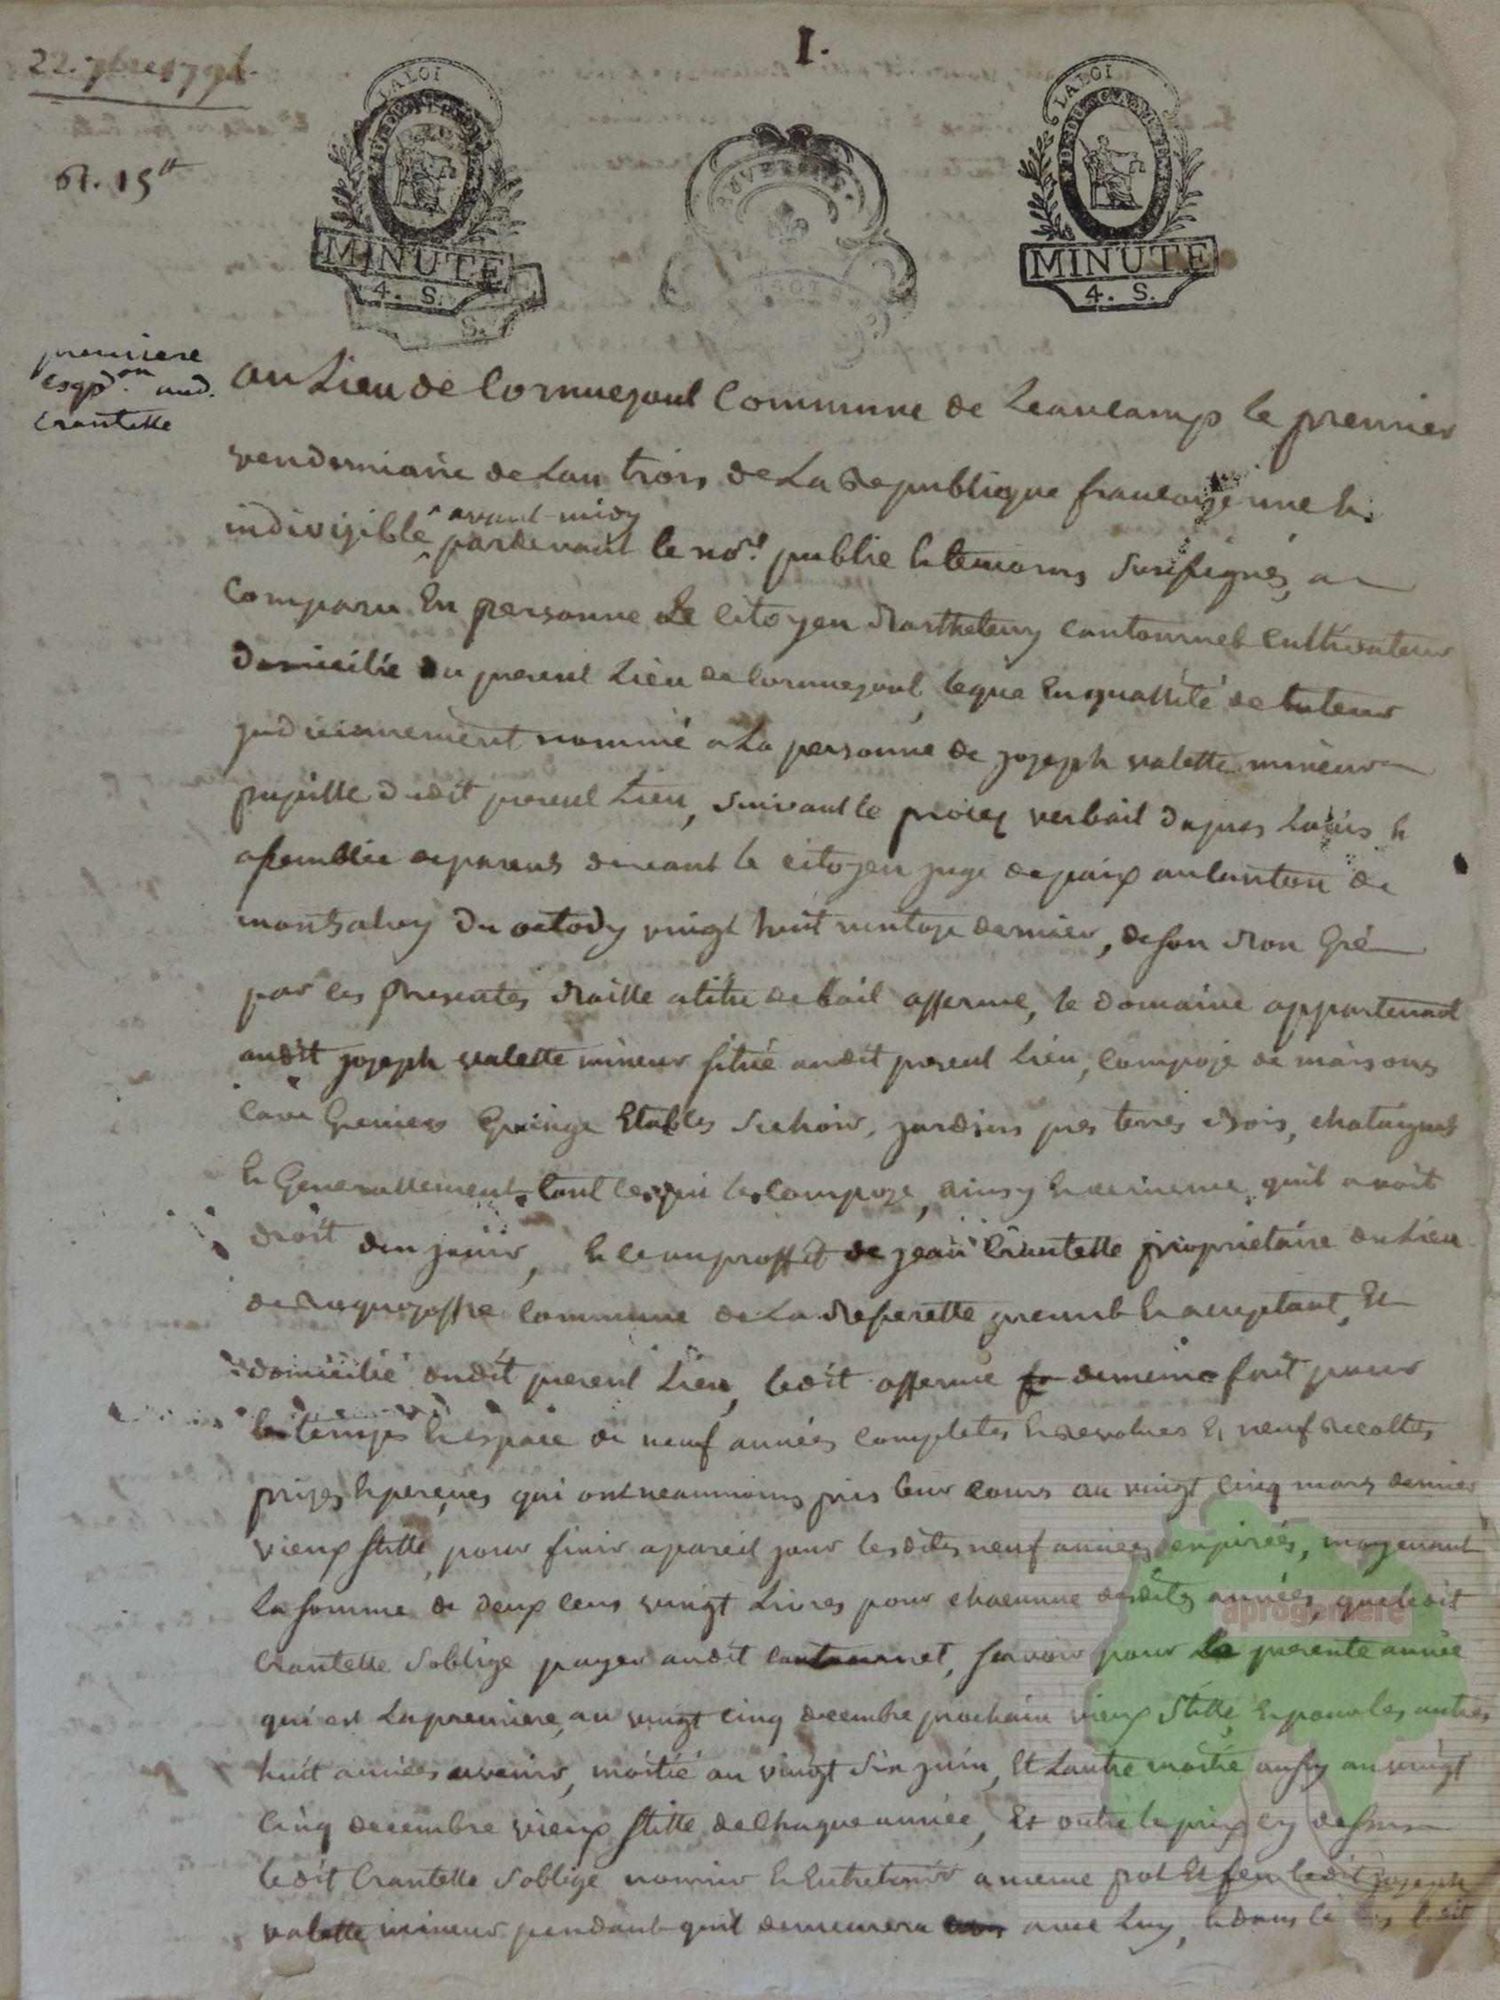 22. 7bre 1794.
I.
LA LOI
LA LOI
MINUTE
4. S.
S.
MINUTE
4. S.
premiere
Crantelle
au Lieu de Cornuejoul Commune de Leaucamp le premier
vendemiaire de Lan trois de La Republique francaise une &
indivizible avant midy pardevant le nore. public & temoins Soussignés, a
Comparu En personne Le citoyen Barthelemy cantournet cultivateur
Domicilié du present Lieu de Cornuejoul, leque En quallité de tuteur
judiciairement nommé a La personne de jozeph valette mineur
pupille dudit present Lieu, Suivant le procez verbail dapres Lavis &
assemblée de parens devant le citoyen juge de paix au Canton de
montsalvy Du octody vingt huit ventoze dernier, de son Bon Gré
par ces Presentes Baille a titre de bail afferme, le domaine appartenant
audit jozeph valette mineur situé audit present Lieu, compozé de maisons
Cave Greniers Grainge Etables Sechoir, jardins pres terres Bois, chataignal
& Generallement tout ce qui le Compoze, ainsy & de meme quil avoit
droit den jouir, & ce au proffit de jean Crantelle proprietaire du Lieu
de Commune de La Besserette present & acceptant, Et
domicilié audit present Lieu, ledit afferme de meme fait pour
le temps & espace de neuf années completes & revolues & neuf recoltes
prizes & perçues qui ont neanmoins pris leur cours au vingt cinq mars dernier
vieux stille, pour finir a pareil jour lesdites neuf années expirées, moyenant
La somme de deux cens vingt Livres pour chacunne desdites années, que ledit
Crantelle Soblige payer audit cantournet, scavoir pour La presente année
qui est La premiere, au vingt cinq decembre prochain vieux Stille, & pour les autres
huit années avenir, moitié au vingt Six juin, Et Lautre moitié aussy au vingt
Cinq decembre vieux stille de Chaque année, Et outre le prix cy dessus
ledit Crantelle Soblige nourrir & Entretenir a meme pot Et feu ledit jozeph
valette mineur pendant quil demeurera avec Luy, & dans le cas ledit
aprogemere